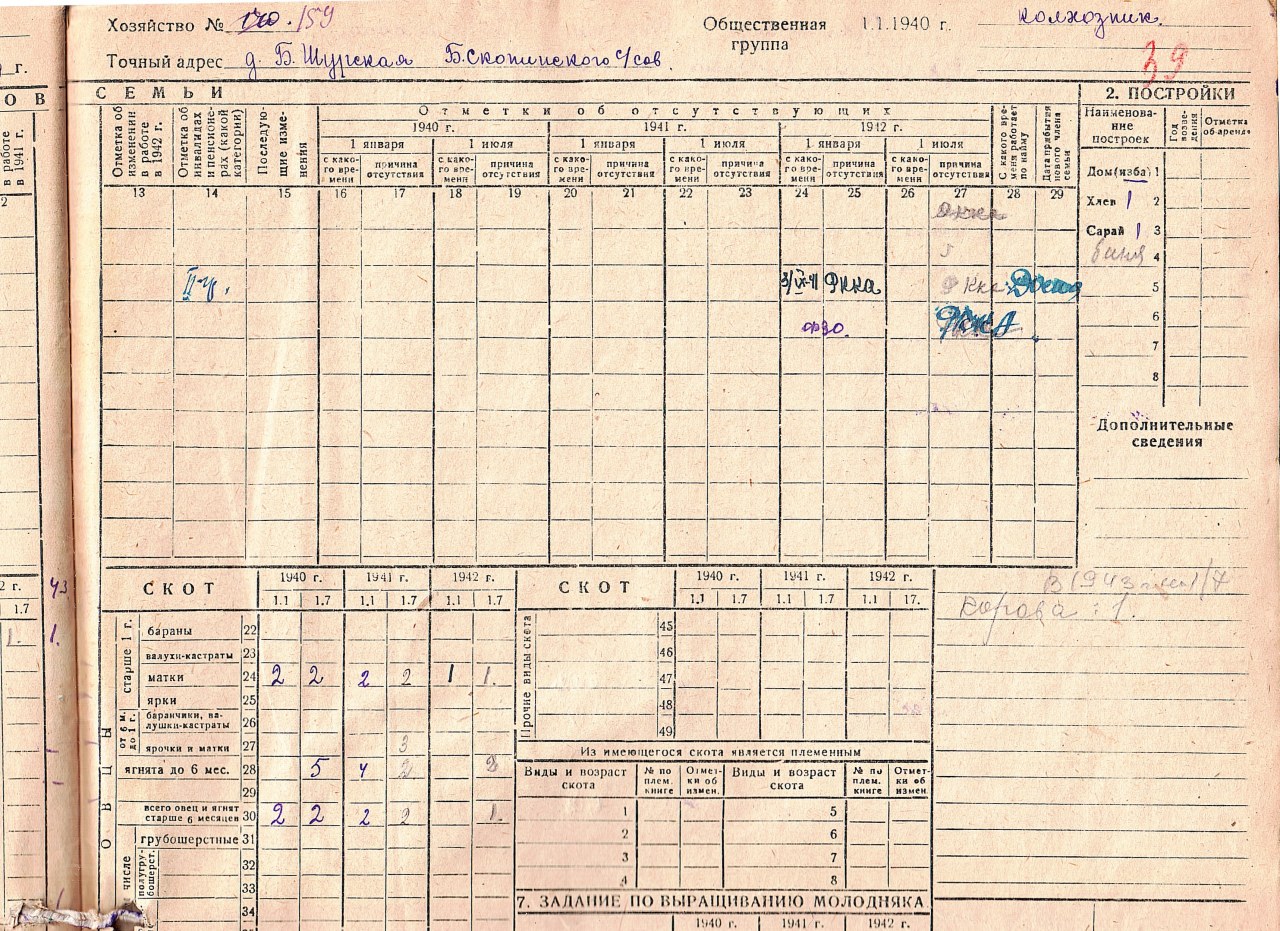 Хозяйство № 170./59
Общественная группа
1.1.1940 г.
колхозник.
Точный адрес д. Б. Шурская Б.Скопинского с/сов.
39
_ г.
ОВ
СЕМЬИ
2. ПОСТРОЙКИ
в работе в 1941 г.
Отметка об изменении в работе в 1942 г.
Отметка об инвалидах и пенсионерах (какой категории)
Последующие изменения
Отметки об отсутствующих
1940 г. 1941 г. 1942 г.
1 января 1 июля 1 января 1 июля 1 января 1 июля
с какого времени причина отсутствия с какого времени причина отсутствия с какого времени причина отсутствия с какого времени причина отсутствия с какого времени причина отсутствия с какого времени причина отсутствия
С какого времени работает по найму
Дата прибытия нового члена семьи
Наименование построек
Год возведения
Отметка об аренде
2 13 14 15 16 17 18 19 20 21 22 23 24 25 26 27 28 29
Дом (изба) 1
Хлев 1 2
Сарай 1 3
баня 4
5
6
7
8
Ркка
II гр. 3/IX-41 Ркка Ркка
фзо. РККА
Дополнительные сведения
2 г. 43
1.7
1. 1.
СКОТ 1940 г. 1941 г. 1942 г.
1.1 1.7 1.1 1.7 1.1 1.7
ОВЦЫ
старше 1 г.
бараны 22
валухи-кастраты 23
матки 24 2 2 2 2 1 1.
ярки 25
от 6 м. до 1 г.
баранчики, валушки-кастраты 26
ярочки и матки 27 3
ягнята до 6 мес. 28 5 4 2 2
29
всего овец и ягнят старше 6 месяцев 30 2 2 2 2 1.
числе
грубошерстные 31
полугрубошерст.
32
33
34
СКОТ 1940 г. 1941 г. 1942 г.
1.1 1.7 1.1 1.7 1.1 17.
Прочие виды скота
45
46
47
48
49
Из имеющегося скота является племенным
Виды и возраст скота № по плем. книге Отметки об измен. Виды и возраст скота № по плем. книге Отметки об измен.
1 5
2 6
3 7
4 8
7. ЗАДАНИЕ ПО ВЫРАЩИВАНИЮ МОЛОДНЯКА
1940 г. 1941 г. 1942 г.
1/7
корова : 1.